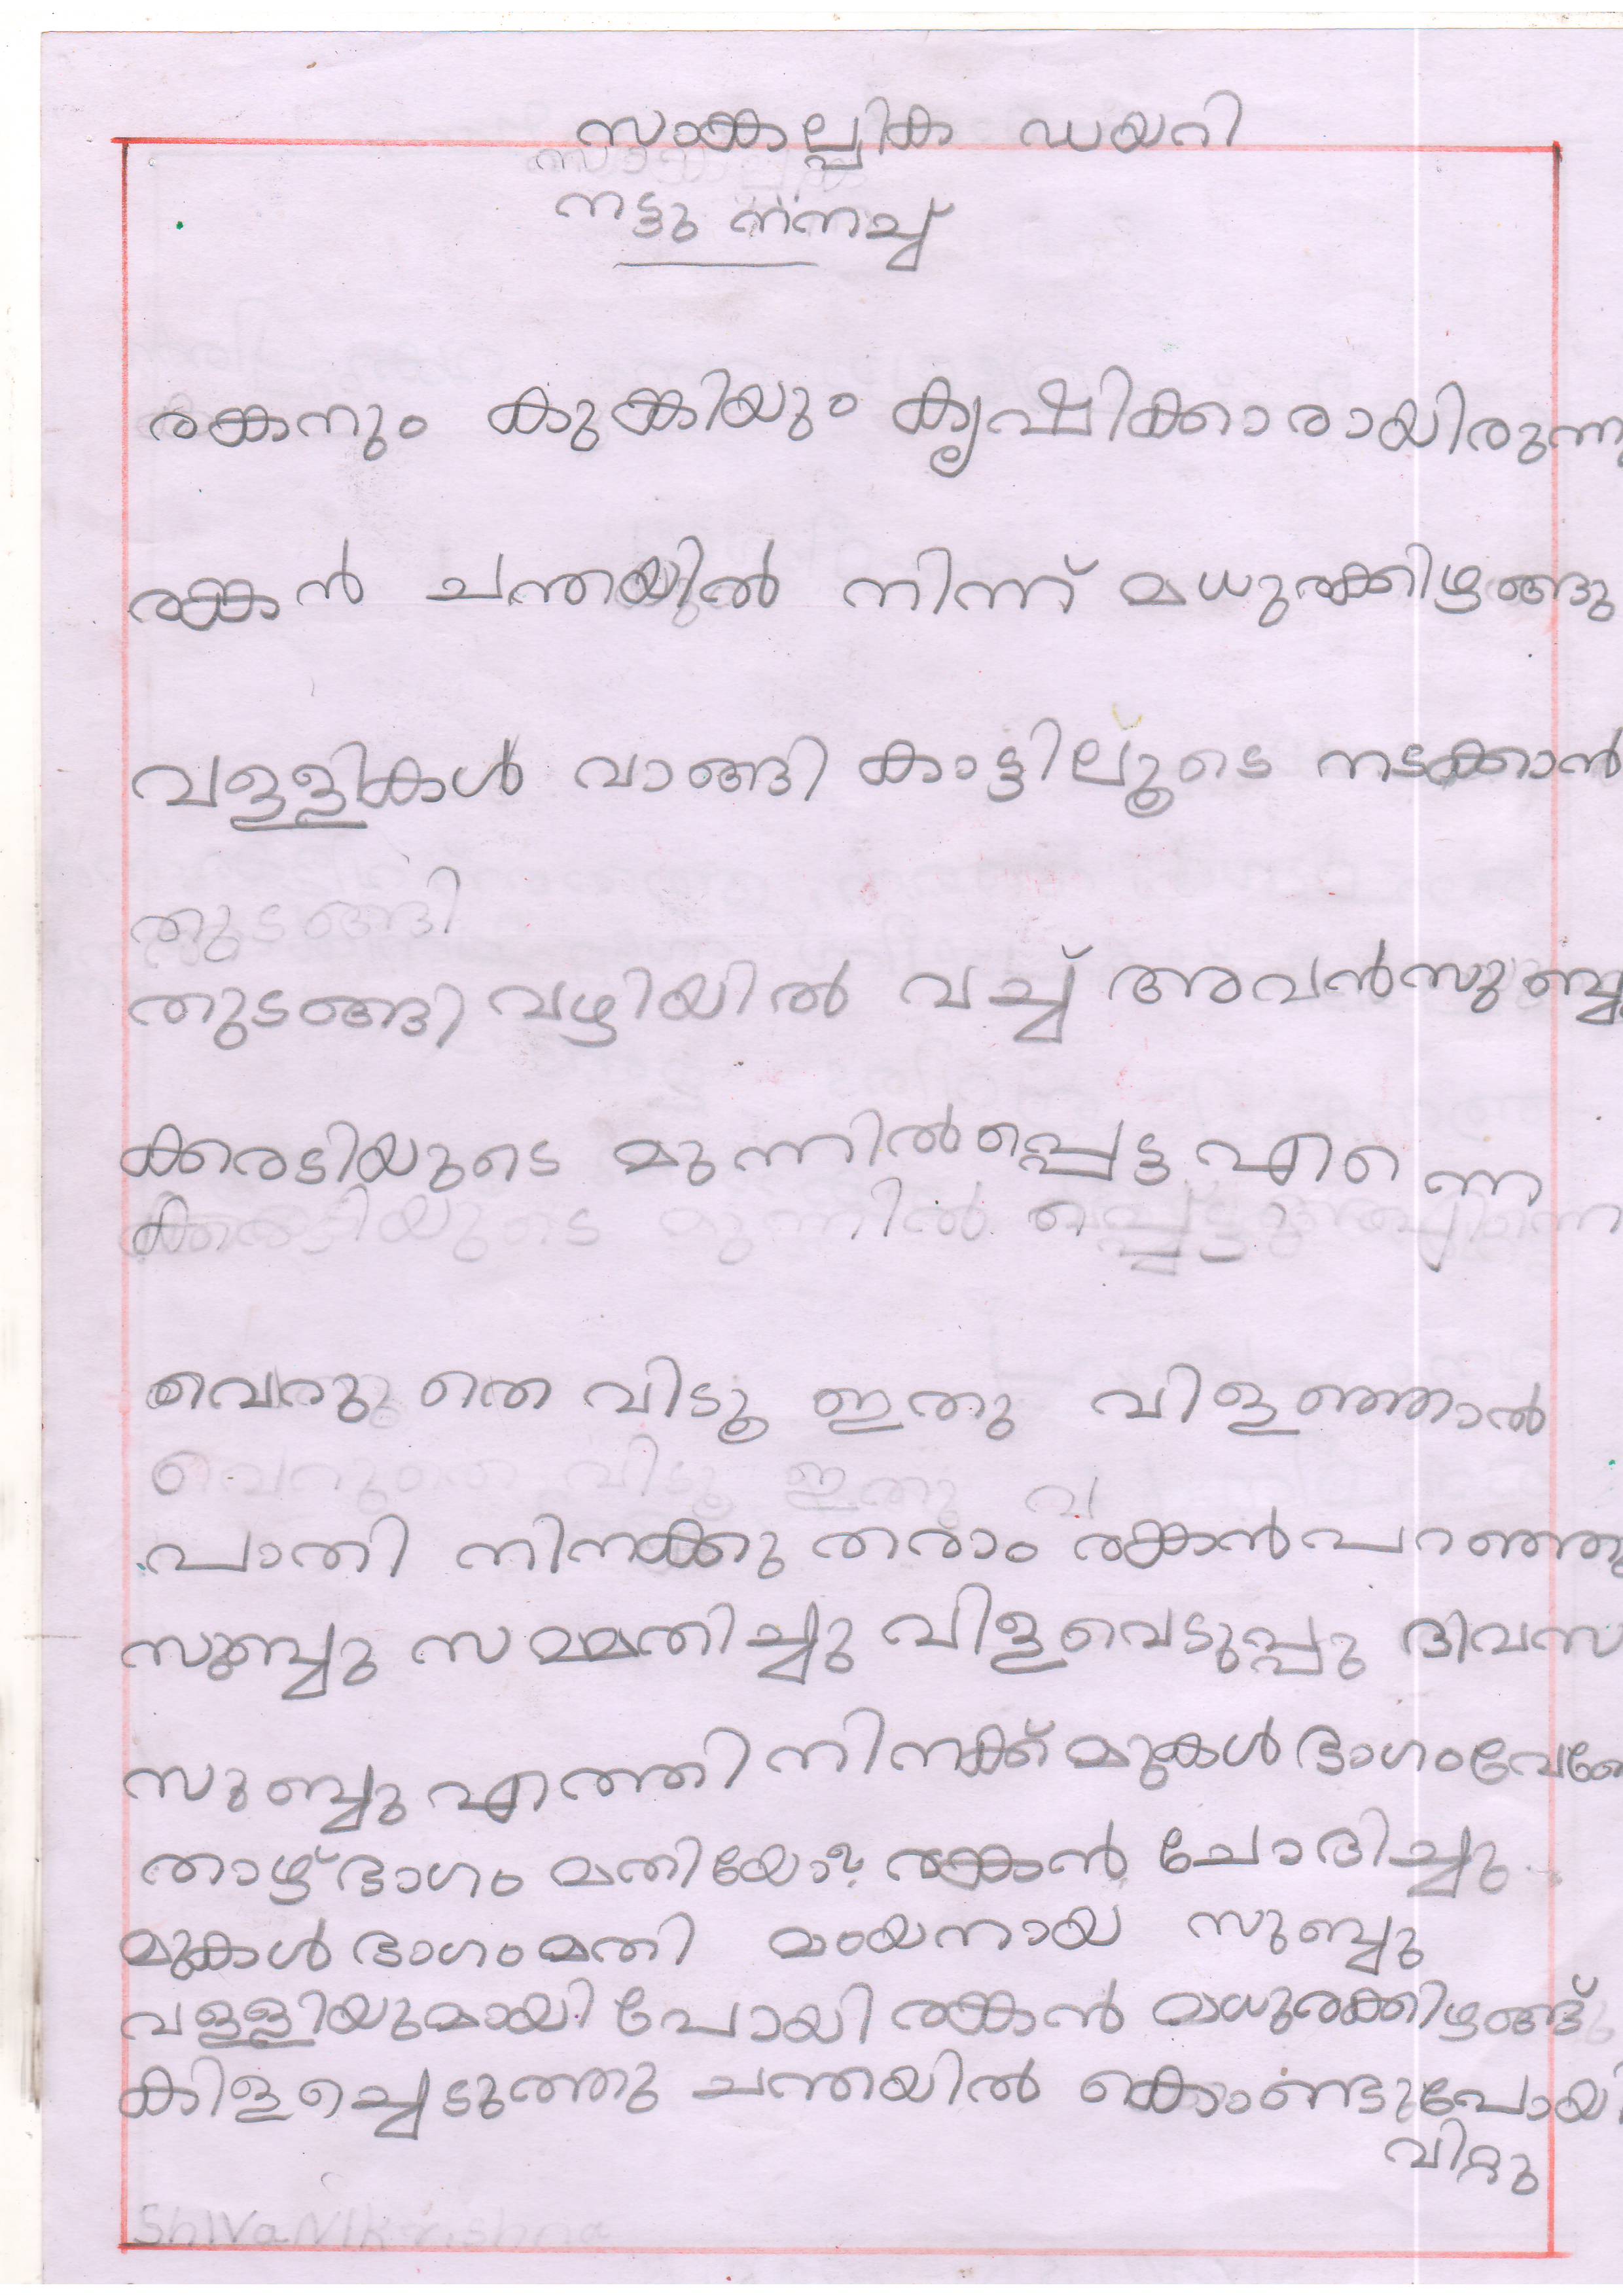 സാങ്കല്പിക ഡയറി
നട്ടു നനച്ച്
രങ്കനും കുങ്കിയും കൃഷിക്കാരായിരുന്നു
രങ്കൻ ചന്തയിൽ നിന്ന് മധുരക്കിഴങ്ങു
വള്ളികൾ വാങ്ങി കാട്ടിലൂടെ നടക്കാൻ
തുടങ്ങി
തുടങ്ങി വഴിയിൽ വച്ച് അവൻ സുബ്ബു
ക്കരടിയുടെ മുന്നിൽപ്പെട്ടു എന്നെ
ക്കരടിയുടെ മുന്നിൽ
വെറുതെ വിടൂ ഇതു വിളഞ്ഞാൽ
വെറുതെ വിടൂ ഇതു വ
പാതി നിനക്കു തരാം രങ്കൻ പറഞ്ഞു
സുബ്ബു സമ്മതിച്ചു വിളവെടുപ്പു ദിവസ
സുബ്ബു എത്തി നിനക്ക് മുകൾ ഭാഗം
താഴ്ഭാഗം മതിയോ? രങ്കൻ ചോദിച്ചു.
മുകൾ ഭാഗം മതി മടയനായ സുബ്ബു
വള്ളിയുമായി പോയി രങ്കൻ മധുരക്കിഴങ്ങ്
കിളച്ചെടുത്തു ചന്തയിൽ കൊണ്ടുപോയി
വിറ്റു
ShIVaNIkrishna